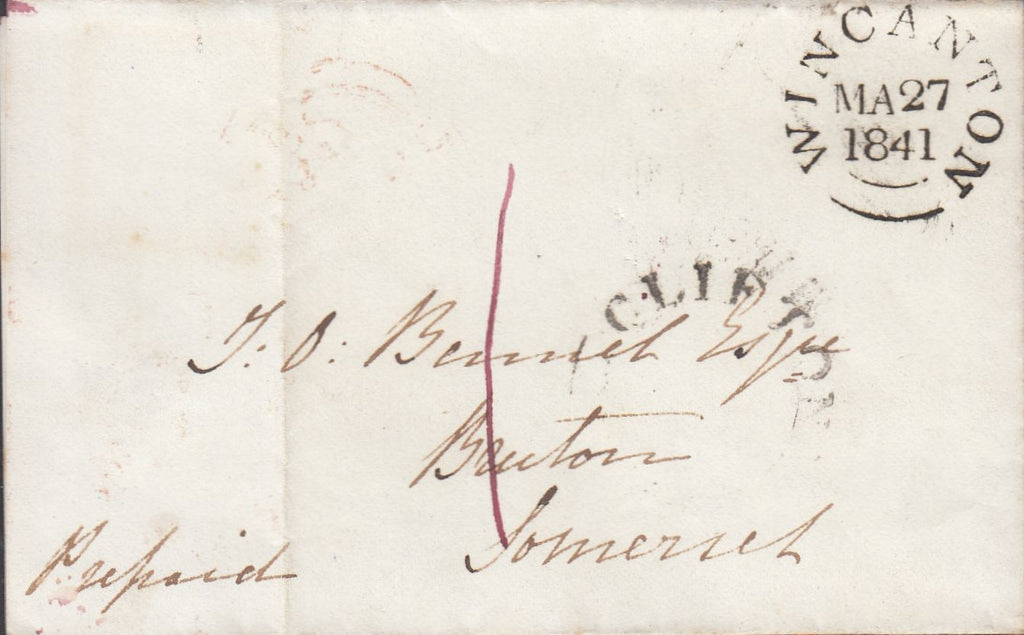 WINCANTON
MA27
1841
CLIFTON
T. O: Bennet Esqre
Bruton
Somerset
Prepaid